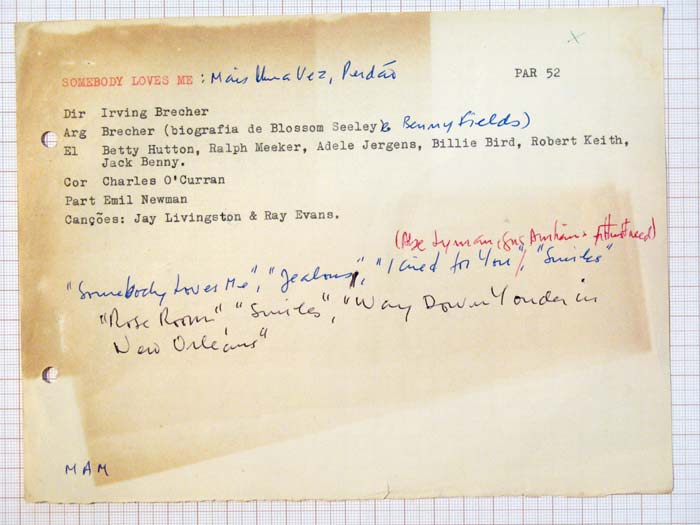 SOMEBODY LOVES ME : Mais Uma Vez, Perdão PAR 52
Dir Irving Brecher
Arg Brecher (biografia de Blossom Seeley) & Benny Fields)
El Betty Hutton, Ralph Meeker, Adele Jergens, Billie Bird, Robert Keith,
Jack Benny.
Cor Charles O'Curran
Part Emil Newman
Canções: Jay Livingston & Ray Evans.
(Abe Lyman, Gus Arnheim &
"Somebody Loves Me", "Jealous", "I Cried for You", "Smiles"
"Rose Room" "Smiles", "Way Down Yonder in
New Orleans"
MAM